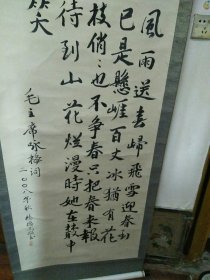 風雨送春歸飛雪迎春到
已是懸崖百丈冰猶有花
枝俏俏也不争春只把春来報
待到山花爛漫時她在叢中
笑
毛主席咏梅词
二〇〇八年秋